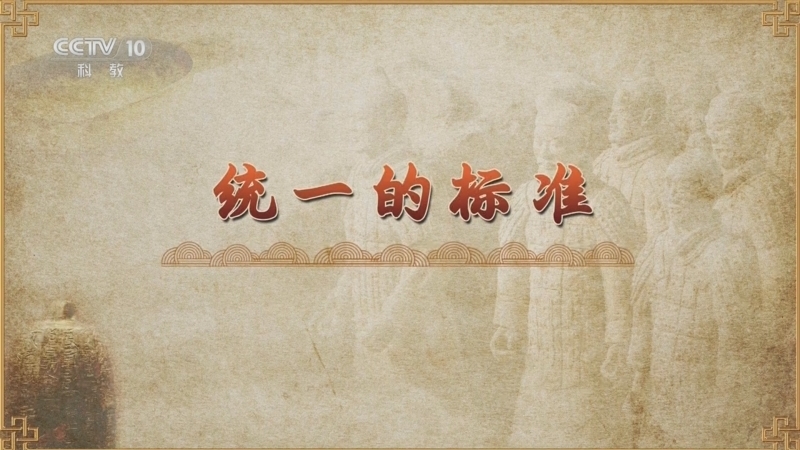 CCTV 10
科教
统一的标准